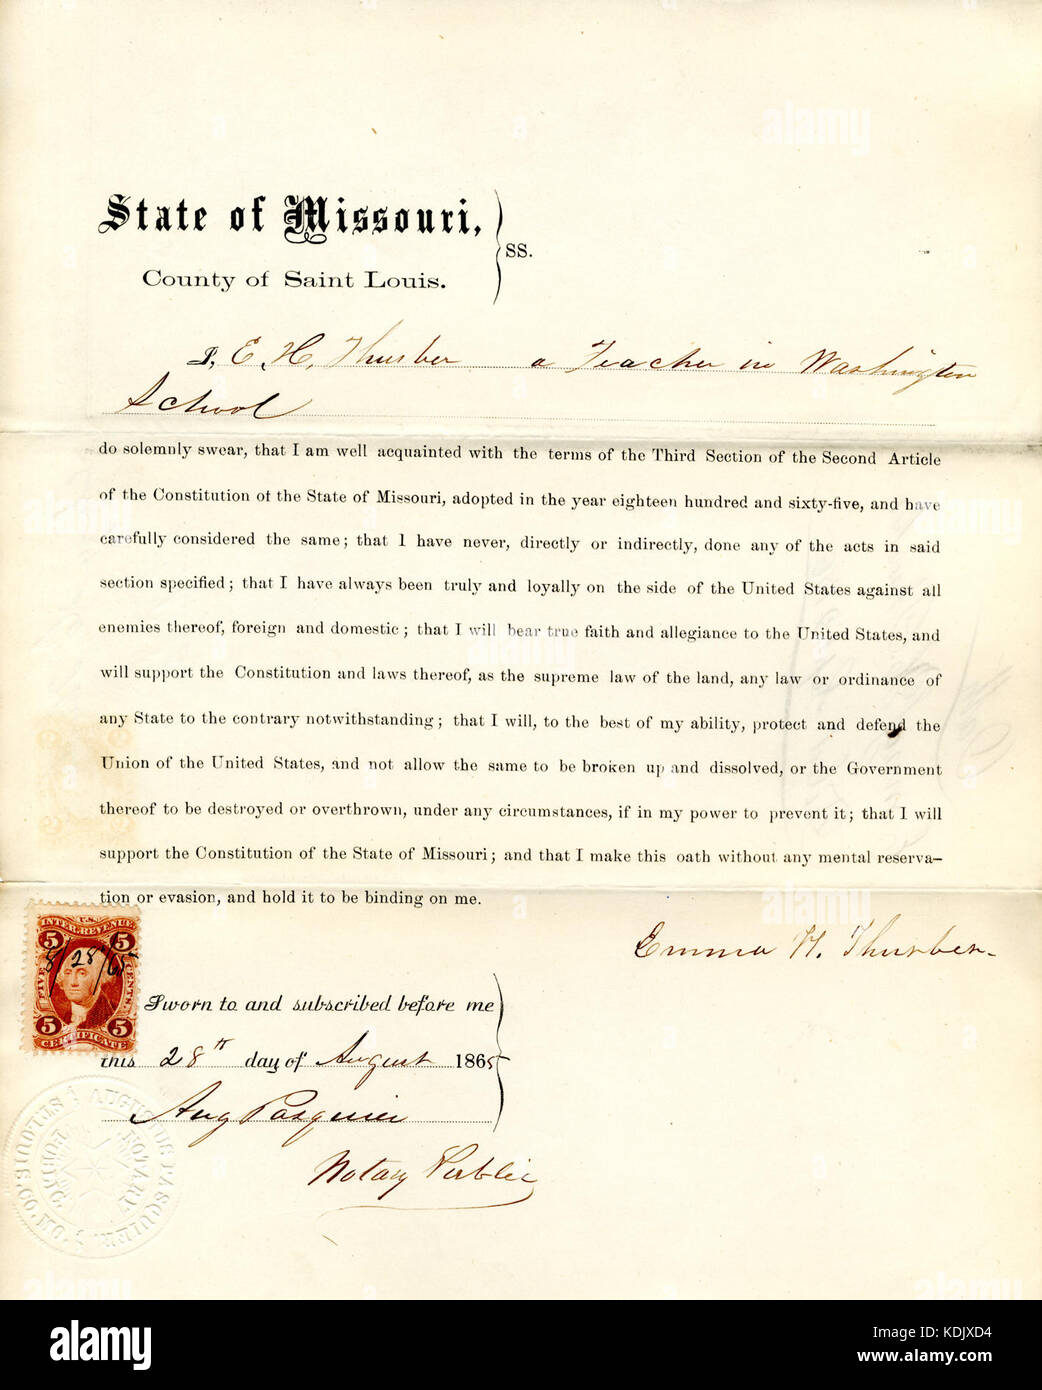 State of Missouri,
County of Saint Louis.
SS.
I, E. H. Thurber a Teacher in Washington
School
do solemnly swear, that I am well acquainted with the terms of the Third Section of the Second Article
of the Constitution of the State of Missouri, adopted in the year eighteen hundred and sixty-five, and have
carefully considered the same; that I have never, directly or indirectly, done any of the acts in said
section specified; that I have always been truly and loyally on the side of the United States against all
enemies thereof, foreign and domestic; that I will bear true faith and allegiance to the United States, and
will support the Constitution and laws thereof, as the supreme law of the land, any law or ordinance of
any State to the contrary notwithstanding; that I will, to the best of my ability, protect and defend the
Union of the United States, and not allow the same to be broken up and dissolved, or the Government
thereof to be destroyed or overthrown, under any circumstances, if in my power to prevent it; that I will
support the Constitution of the State of Missouri; and that I make this oath without any mental reserva-
tion or evasion, and hold it to be binding on me.
Emma H. Thurber.
U.S.
INTER. REVENUE
5 5
8/28/65
FIVE CENTS.
5 5
CERTIFICATE
Sworn to and subscribed before me
this 28th day of August 1865
Aug Pasquier
Notary Public
AUGUSTUS PASQUIER
ST LOUIS CO. MO.
NOTARY PUBLIC
alamy
Image ID: KDJXD4
www.alamy.com